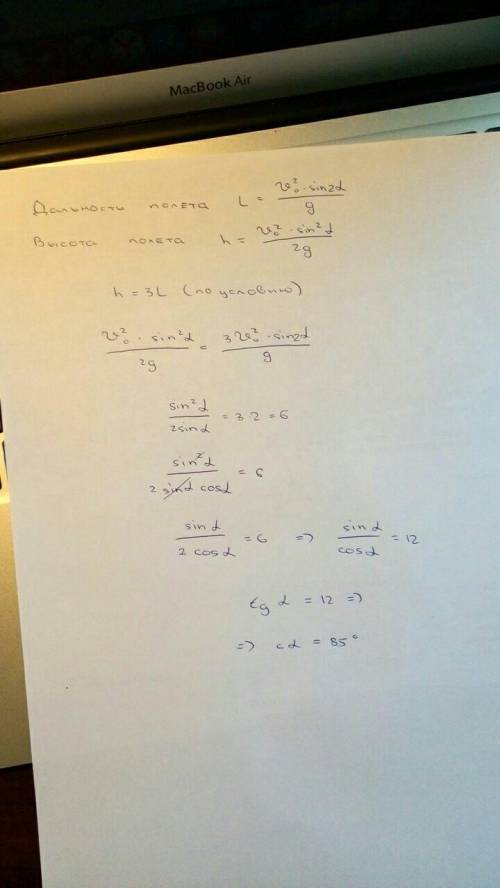 MacBook Air
Дальность полёта L = v₀² · sin2α / g
Высота полёта h = v₀² · sin²α / 2g
h = 3L (по условию)
v₀² · sin²α / 2g = 3v₀² · sin2α / g
sin²α / 2sinα = 3·2 = 6
sin²α / 2 sinα cosα = 6
sinα / 2 cosα = 6 => sinα / cosα = 12
tg α = 12 =>
=> α = 85°